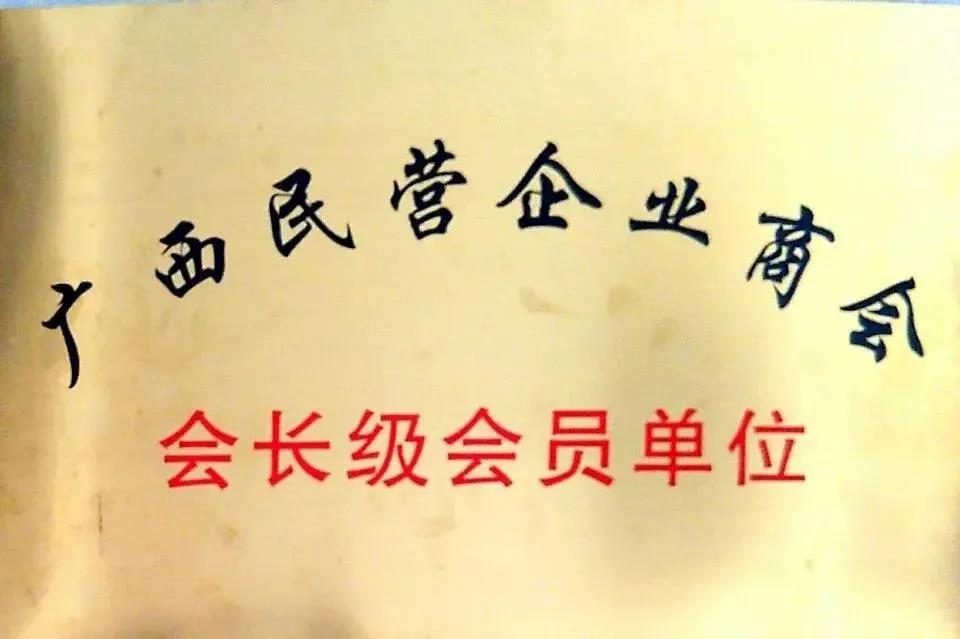 广西民营企业商会
会长级会员单位